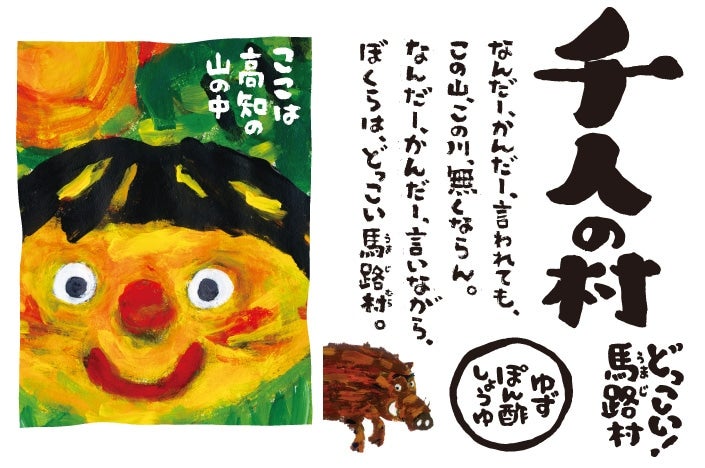 千人の村
どっこい!
馬路村
うまじ
なんだー、かんだー、言われても、
この山、この川、無くならん。
なんだー、かんだー、言いながら、
ぼくらは、どっこい馬路村。
うまじむら
ゆず
ぽん酢
しょうゆ
ここは
高知の
山の中